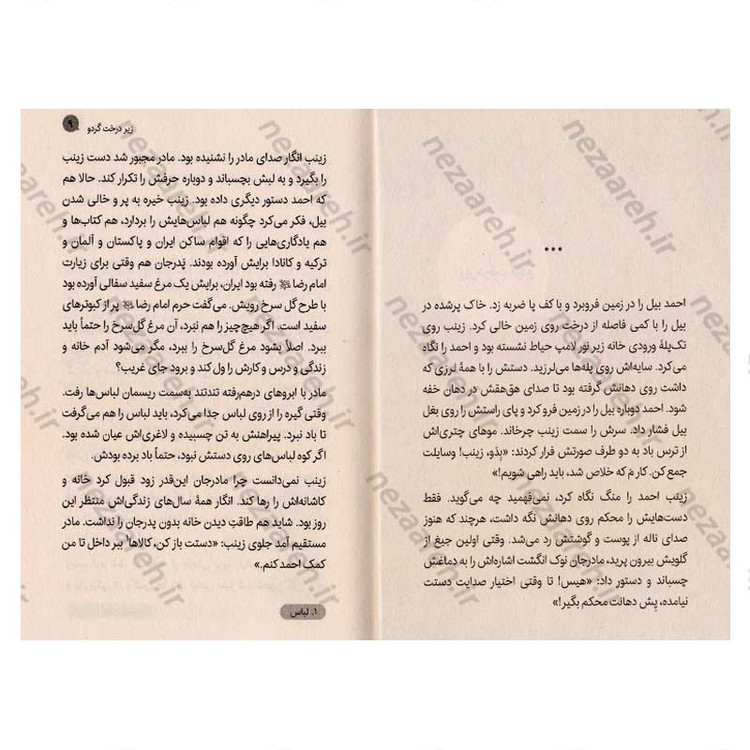 •••
احمد بیل را در زمین فروبرد و با کف پا ضربه زد. خاک پرشده در
بیل را با کمی فاصله از درخت روی زمین خالی کرد. زینب روی
تک‌پلهٔ ورودی خانه زیر نور لامپ حیاط نشسته بود و احمد را نگاه
می‌کرد. سایه‌اش روی پله‌ها می‌لرزید. دستش را با همهٔ لرزی که
داشت روی دهانش گرفته بود تا صدای هق‌هقش در دهان خفه
شود. احمد دوباره بیل را در زمین فرو کرد و پای راستش را روی بغل
بیل فشار داد. سرش را سمت زینب چرخاند. موهای چتری‌اش
از ترس باد به دو طرف صورتش فرار کردند: «بِدُو، زینب! وسایلت
جمع کن. کارِ مَ که خلاص شد، باید راهی شویم!»
زینب احمد را منگ نگاه کرد، نمی‌فهمید چه می‌گوید. فقط
دست‌هایش را محکم روی دهانش نگه داشت، هرچند که هنوز
صدای ناله از پوست و گوشتش رد می‌شد. وقتی اولین جیغ از
گلویش بیرون پرید، مادرجان نوک انگشت اشاره‌اش را به دماغش
چسباند و دستور داد: «هیس! تا وقتی اختیار صدایت دستت
نیامده، پِش دهانت محکم بگیر!»
زیر درخت گردو ۹
زینب انگار صدای مادر را نشنیده بود. مادر مجبور شد دست زینب
را بگیرد و به لبش بچسباند و دوباره حرفش را تکرار کند. حالا هم
که احمد دستور دیگری داده بود. زینب خیره به پر و خالی شدن
بیل، فکر می‌کرد چگونه هم لباس‌هایش را بردارد، هم کتاب‌ها و
هم یادگاری‌هایی را که اقوام ساکن ایران و پاکستان و آلمان و
ترکیه و کانادا برایش آورده بودند. پدرجان هم وقتی برای زیارت
امام رضا رفته بود ایران، برایش یک مرغ سفید سفالی آورده بود
با طرح گل سرخ رویش. می‌گفت حرم امام رضا پر از کبوترهای
سفید است. اگر هیچ‌چیز را هم نبَرد، آن مرغ گل‌سرخ را حتماً باید
ببرد. اصلاً بشود مرغ گل‌سرخ را نبرد، مگر می‌شود آدم خانه و
زندگی و درس و کارش را ول کند و برود جای غریب؟
مادر با ابروهای درهم‌رفته تندتند به‌سمت ریسمان لباس‌ها رفت.
وقتی گیره را از روی لباس جدا می‌کرد، باید لباس را هم می‌گرفت
تا باد نبرد. پیراهنش به تن چسبیده و لاغری‌اش عیان شده بود.
اگر کوه لباس‌های روی دستش نبود، حتماً باد برده بودش.
زینب نمی‌دانست چرا مادرجان این‌قدر زود قبول کرد خانه و
کاشانه‌اش را رها کند. انگار همهٔ سال‌های زندگی‌اش منتظر این
روز بود. شاید هم طاقتِ دیدن خانه بدون پدرجان را نداشت. مادر
مستقیم آمد جلوی زینب: «دستت باز کن، کالاها۱ ببر داخل تا من
کمک احمد کنم.»
۱. لباس
nezaareh.ir